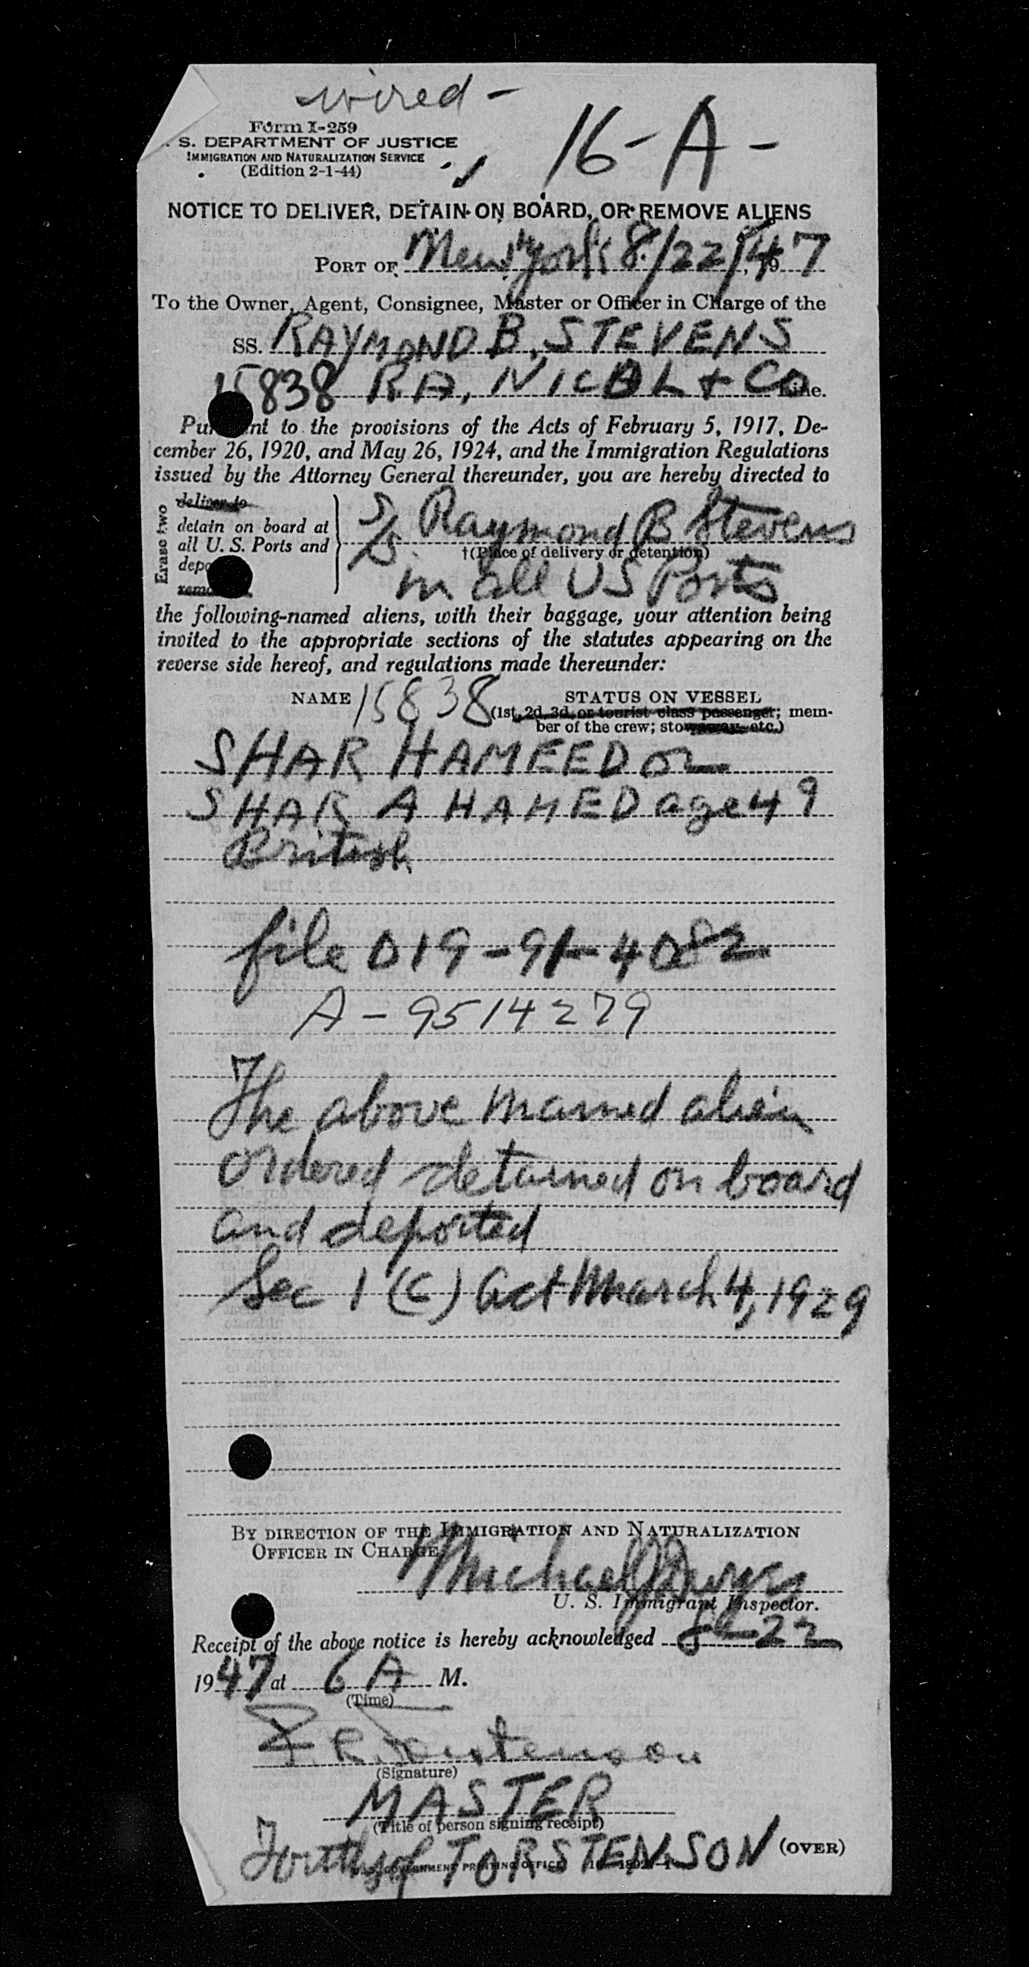 wired -
16-A-
Form I-259
. S. DEPARTMENT OF JUSTICE
IMMIGRATION AND NATURALIZATION SERVICE
(Edition 2-1-44)
NOTICE TO DELIVER, DETAIN ON BOARD, OR REMOVE ALIENS
PORT OF New York 8/22/, 1947
To the Owner, Agent, Consignee, Master or Officer in Charge of the
SS. RAYMOND B. STEVENS
15838 RA, NICOL & Co Line.
Pu nt to the provisions of the Acts of February 5, 1917, De-
cember 26, 1920, and May 26, 1924, and the Immigration Regulations
issued by the Attorney General thereunder, you are hereby directed to
Erase two
deliver to
detain on board at
all U. S. Ports and
depo
remo
S/S. Raymond B Stevens
†(Place of delivery or detention)
in all US Ports
the following-named aliens, with their baggage, your attention being
invited to the appropriate sections of the statutes appearing on the
reverse side hereof, and regulations made thereunder:
NAME 15838 STATUS ON VESSEL
(1st, 2d, 3d, or tourist class passenger; mem-
ber of the crew; stowaway, etc.)
SHAR HAMEED or
SHAR A HAMED age 49
British
file 019-91-4082
A-9514279
The above named alien
ordered detained on board
and deported
Sec 1 (C) Act March 4, 1929
BY DIRECTION OF THE IMMIGRATION AND NATURALIZATION
OFFICER IN CHARGE
Michael J
U. S. Immigrant Inspector.
Receipt of the above notice is hereby acknowledged 8-22
1947 at 6 A M.
(Time)
(Signature)
MASTER
(Title of person signing receipt)
TORSTENSON (OVER)
GOVERNMENT PRINTING OFFICE